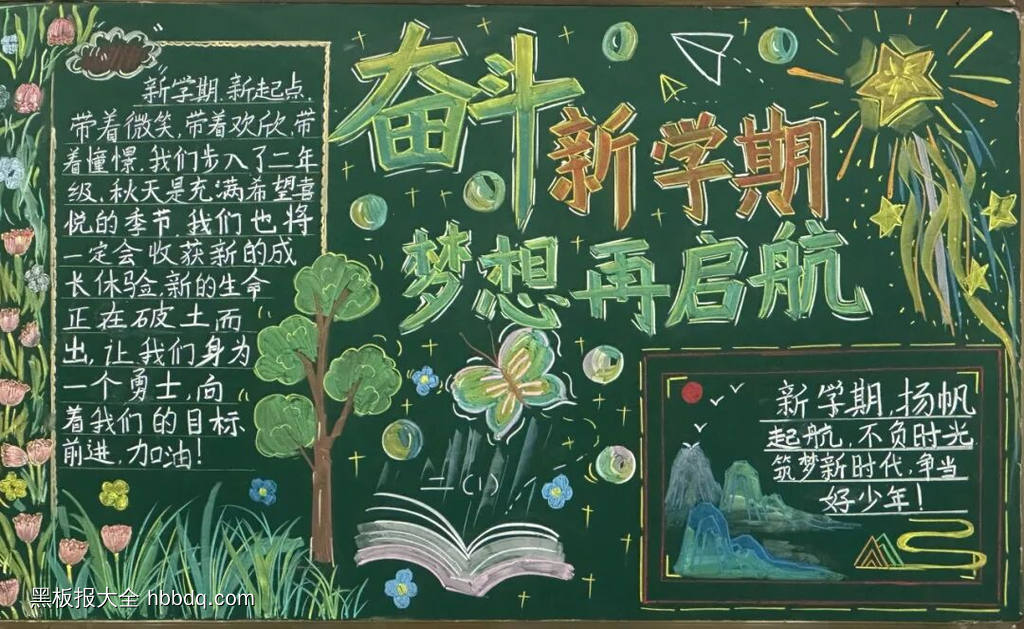 奋斗
新学期
梦想再启航
新学期,新起点
带着微笑,带着欢欣,带
着憧憬,我们步入了二年
级,秋天是充满希望喜
悦的季节,我们也将
一定会收获新的成
长体验,新的生命
正在破土而
出,让我们身为
一个勇士,向
着我们的目标
前进,加油!
二(1)
新学期,扬帆
起航,不负时光
筑梦新时代,争当
好少年!
黑板报大全 hbbdq.com